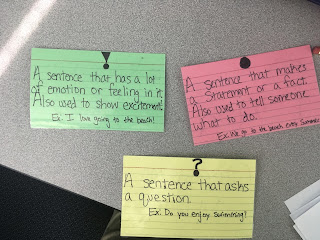 !
A sentence that has a lot
of emotion or feeling in it.
Also used to show excitement.
Ex: I love going to the beach!
.
A sentence that makes
a statement or a fact.
Also used to tell someone
what to do.
Ex: We go to the beach every Summer.
?
A sentence that asks
a question.
Ex: Do you enjoy Swimming?